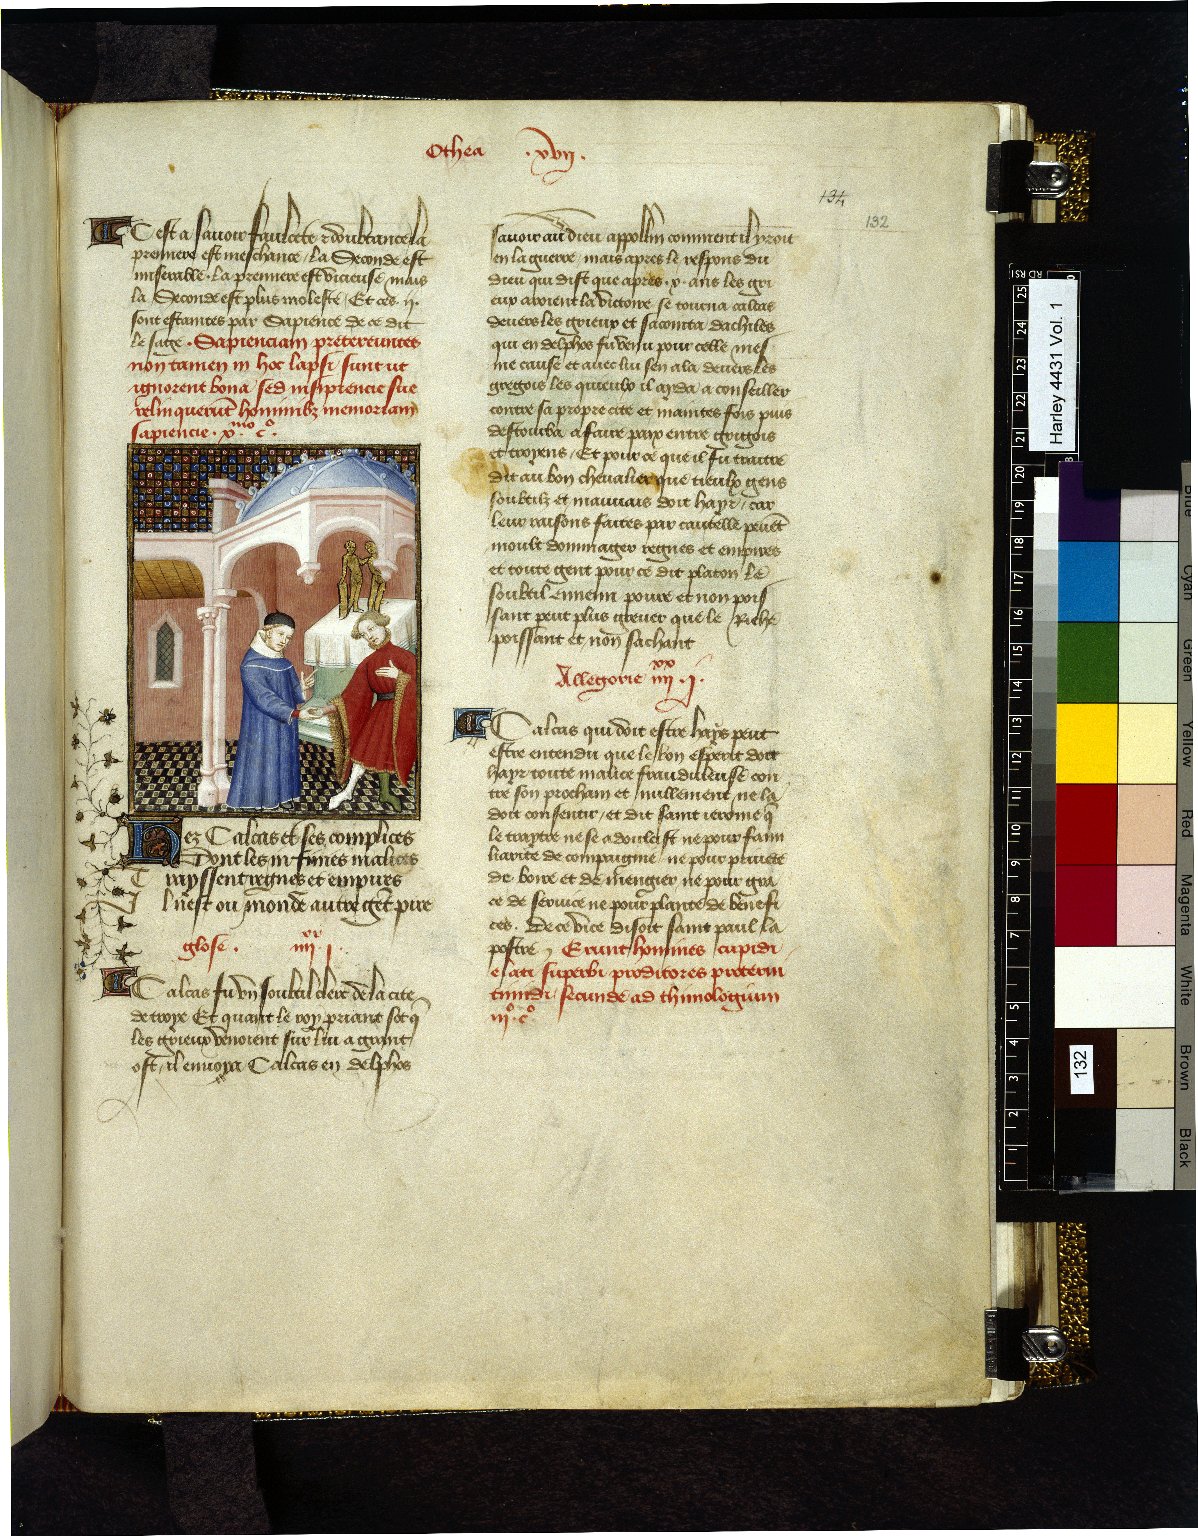 Othea .xvij.
134
132
C est a savoir faulcete & doubtance la
premiere est meschance / la Seconde est
miserable . la premiere est vicieuse mais
la Seconde est plus moleste / Et ces .ij.
sont estaintes par Sapience de ce dit
le sage . Sapienciam pretereuntes
non tamen in hoc lapsi sunt ut
ignorent bona / sed insipiencie sue
relinquerunt hominibz memoriam
sapiencie . xmo co.
Hez Calcas et ses complices
Dont les infinies malices
trayssent regnes et empires
Il n'est ou monde autre gent pire
glose . iiijxx j.
Calcas fu un soubtil clerc de la cite
de troye Et quant le roy priant sot q
les grieux venoient sur lui a grant
ost / il envoya Calcas en delphos
savoir au dieu appollin comment il yroit
en la guerre / mais apres le respons du
dieu qui dist que apres .x. ans les gri
eux avoient la victoire se tourna calcas
devers les grieux et sacointa dachiles
qui en delphos fu venu pour celle mes
me cause et avec lui sen ala devers les
gregois les quieulx il ayda a conseiller
contre sa propre cite et maintes fois puis
destourba a faire paix entre grigois
et troyens / Et pour ce que il fu traitre
dit au bon chevalier que tieulx gens
soubtilz et mauvais doit hayr / car
leur raisons faites par cautelle peuet
moult dommager regnes et empires
et toute gent pour ce dit platon le
soubtil ennemi povre et non pois
sant peut plus grever que le Riche
poissant et non sachant
Allegorie iiijxx .j.
Calcas qui doit estre hays peut
estre entendu que le bon esperit doit
hayr toute malice frauduleuse con
tre son prochain et nullement ne la
doit consentir / et dit saint ierome q
le traytre ne se adoulcist ne pour fami
liarite de compaignie ne pour privete
de boire et de mengier ne pour gra
ce de service ne pour plante de benefi
ces . De ce vice disoit saint paul la
postre / Erunt homines cupidi
elati superbi proditores proterui
tumidi / secunde ad thimologium
iijo co
Harley 4431 Vol. 1
132
25
24
23
22
21
20
19
18
17
16
15
14
13
12
11
10
9
8
7
6
5
4
3
2
1
Blue
Cyan
Green
Yellow
Red
Magenta
White
Brown
Black